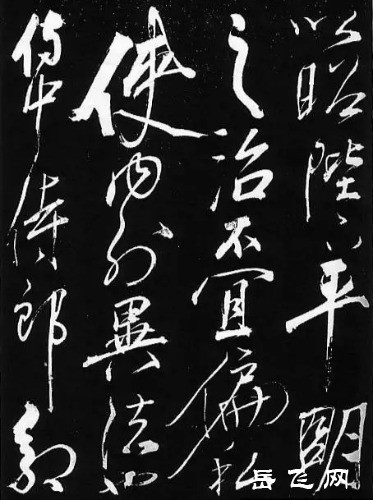 以昭陛下平明
之治不宜偏私
使内外異法也
侍中侍郎郭
岳飞网